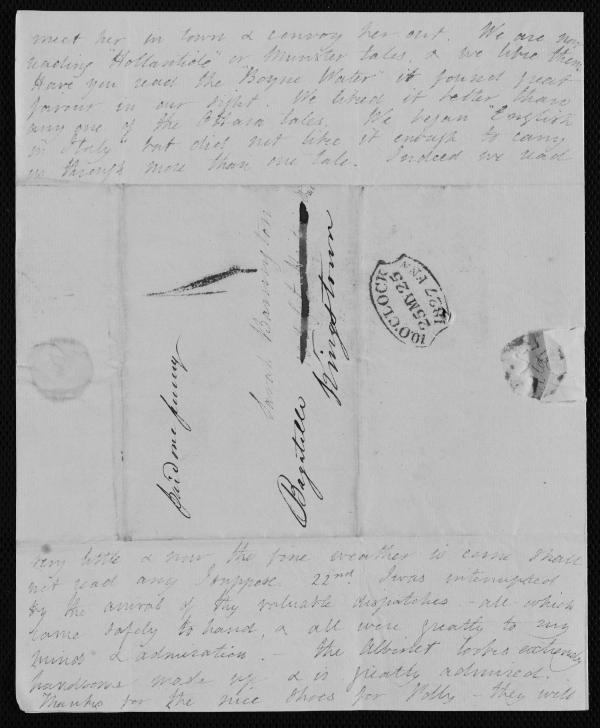 meet her in town & convoy her out. We are now
reading "Hollantide" or Munster tales, & we like them
Have you read the Boyne Water" it found great
favour in our sight. We liked it better than
any one of the OHara tales. We began "English
in Italy" but did not like it enough to carry
us through more than one tale. Indeed we read
Paid one penny
Sarah Barrington
Bagatelle
Kingstown
10,O'CLOCK
25MY25
1827 EN.N
very little & now the fine weather is come shall
not read any I suppose 22nd I was interrupted
by the arrival of thy valuable dispatches - all which
came safely to hand, & all were greatly to my
minds & admiration. - the Albinet looks extremely
handsome made up & is greatly admired.
Thanks for the nice shoes for Polly - they will